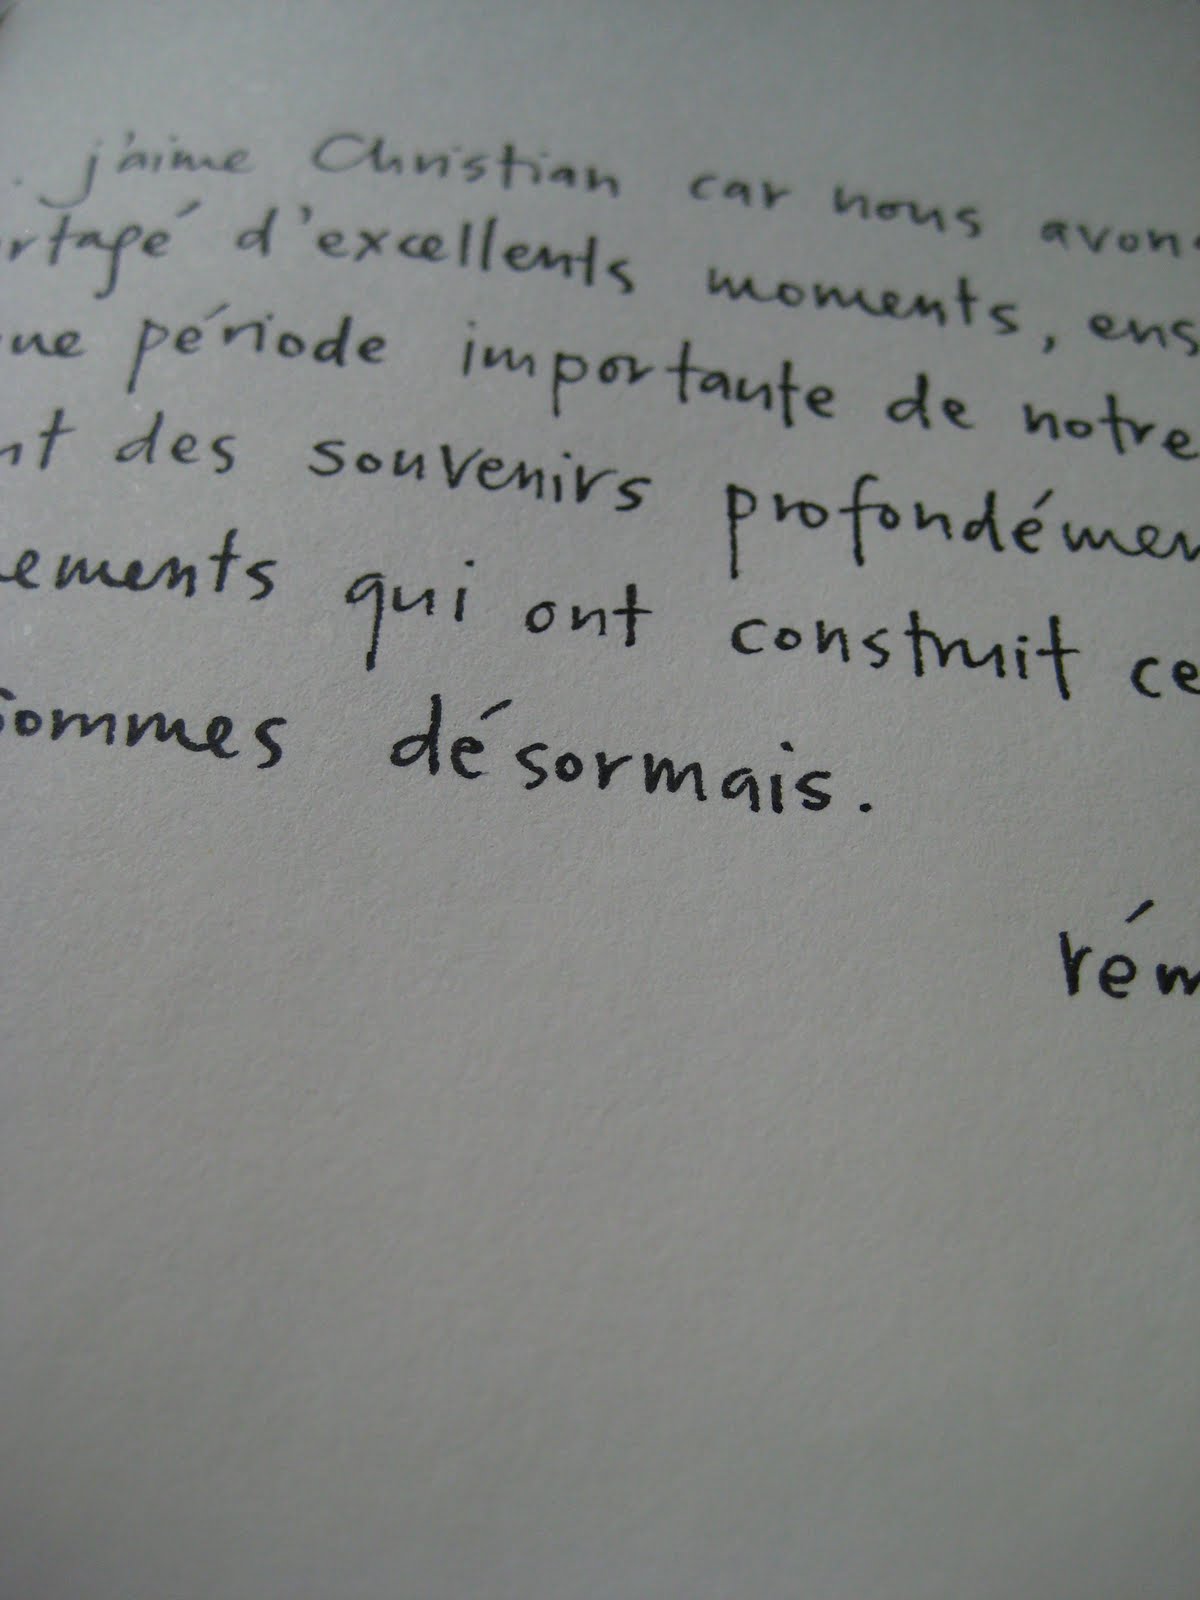 . j'aime Christian car nous avons
rtagé d'excellents moments, ens
ne période importante de notre
nt des souvenirs profondémen
ements qui ont construit ce
sommes désormais.
rém